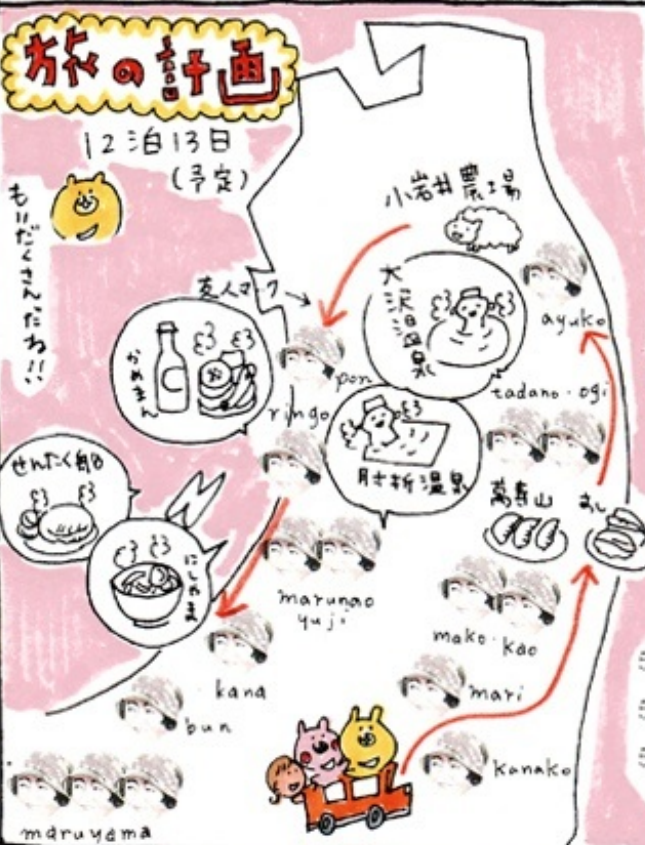 旅の計画
12泊13日
(予定)
小岩井農場
友人マーク
大沢温泉
ayuko
おめまん
pon
tadano・ogi
ringo
せんたく船
萬寿山
marunao
yuji
mako・kao
kana
mari
bun
kanako
maruyama